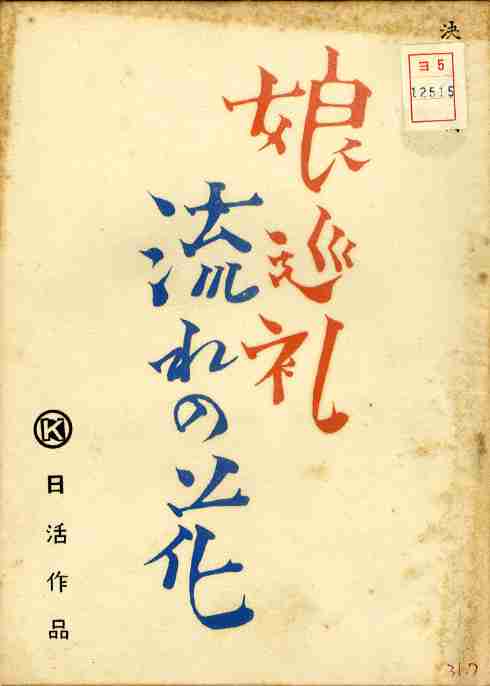 決
ヨ5
12515
娘巡礼
流れの花
K
日活作品
31.7